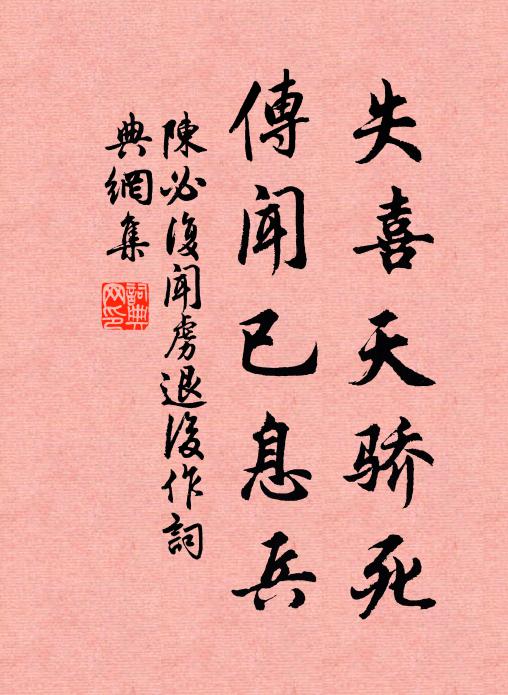 失喜天骄死
傳聞已息兵
陳必復聞虜退復作詞
典網集
詞典網印